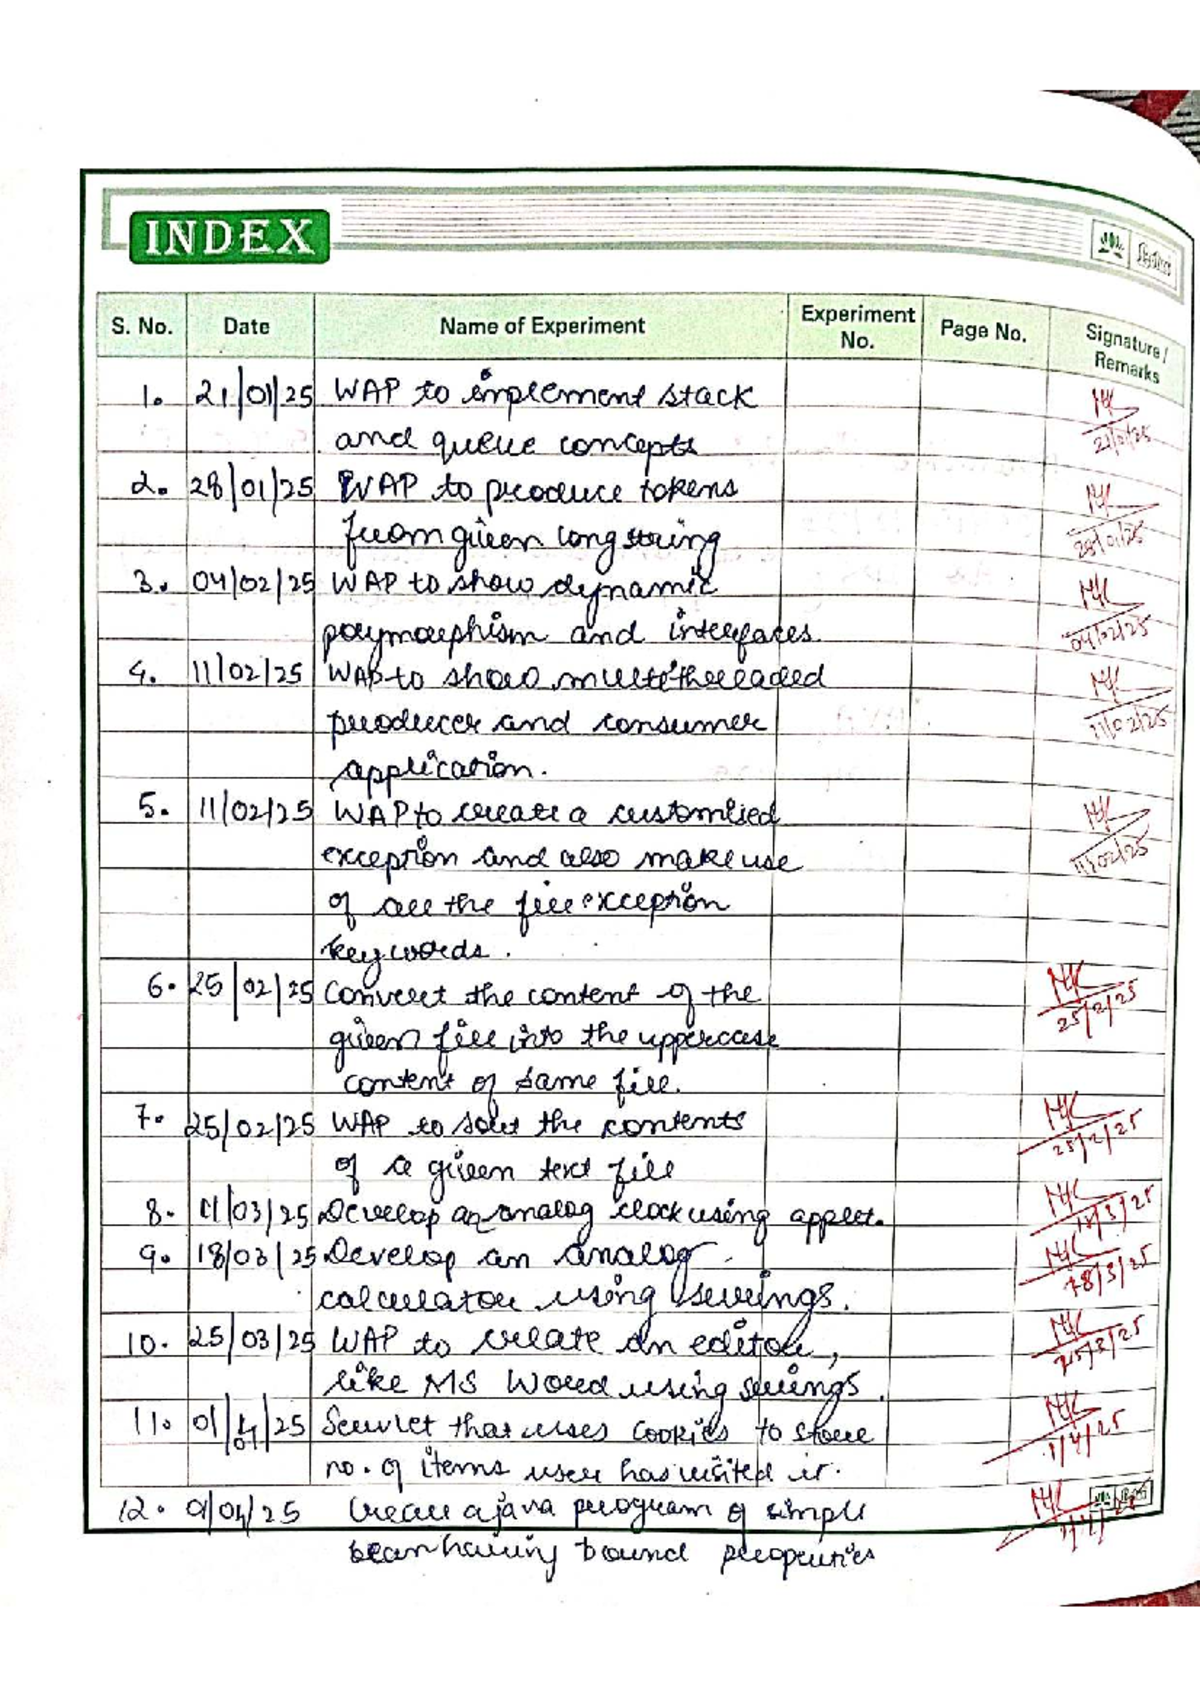 INDEX
S. No. Date Name of Experiment Experiment No. Page No. Signature / Remarks
1. 21/01/25 WAP to implement stack
and queue concepts
21/01/25
2. 28/01/25 WAP to produce tokens
from given long string
28/01/25
3. 04/02/25 WAP to show dynamic
polymorphism and interfaces.
04/02/25
4. 11/02/25 WAP to show multithreaded
producer and consumer
11/02/25
application.
5. 11/02/25 WAP to create a customied
exception and also make use
11/02/25
of all the five exception
keywords.
6. 25/02/25 Convert the content of the
25/2/25
given file into the uppercase
content of same file.
7. 25/02/25 WAP to sort the contents
25/2/25
of a given text file
8. 11/03/25 Develop an analog clock using applet.
18/3/25
9. 18/03/25 Develop an analog
18/3/25
calculator using swings.
10. 25/03/25 WAP to create an editor,
25/3/25
like MS Word using swings.
11. 01/04/25 Servlet that uses cookies to store
1/4/25
no. of items user has visited it.
12. 01/04/25 Create a java program of simple
bean having bound properties